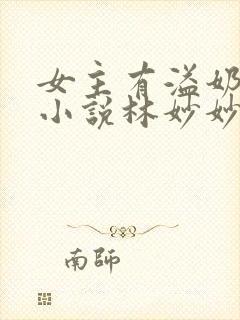 女主有溢奶
小說林妙妙
南師